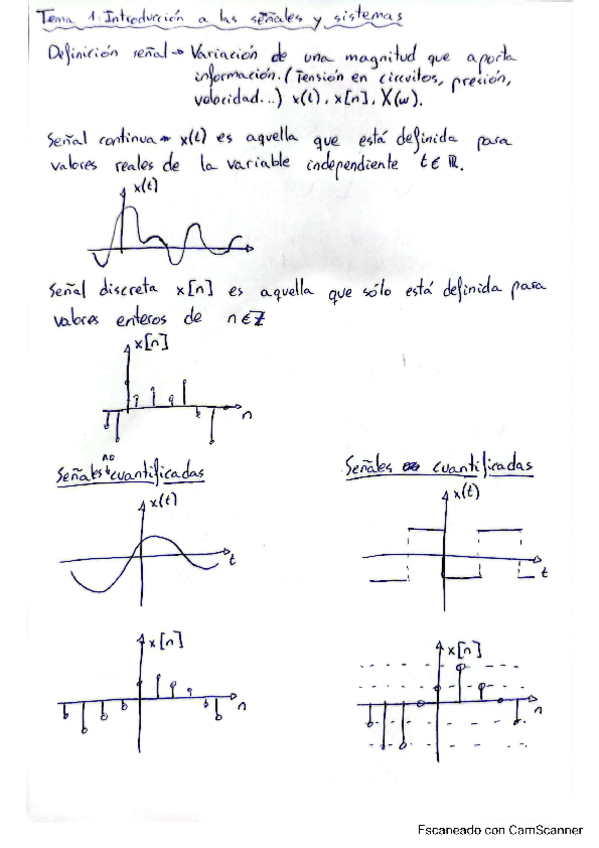 Tema 1: Introducción a las señales y sistemas
Definición señal → Variación de una magnitud que aporta
información. (Tensión en circuitos, presión,
velocidad...) x(t), x[n], X(ω).
Señal continua → x(t) es aquella que está definida para
valores reales de la variable independiente t∈ℝ.
x(t)
Señal discreta x[n] es aquella que sólo está definida para
valores enteros de n∈Z
x[n]
n
Señales no cuantificadas
Señales cuantificadas
x(t)
t
x(t)
t
x[n]
n
x[n]
n
Escaneado con CamScanner